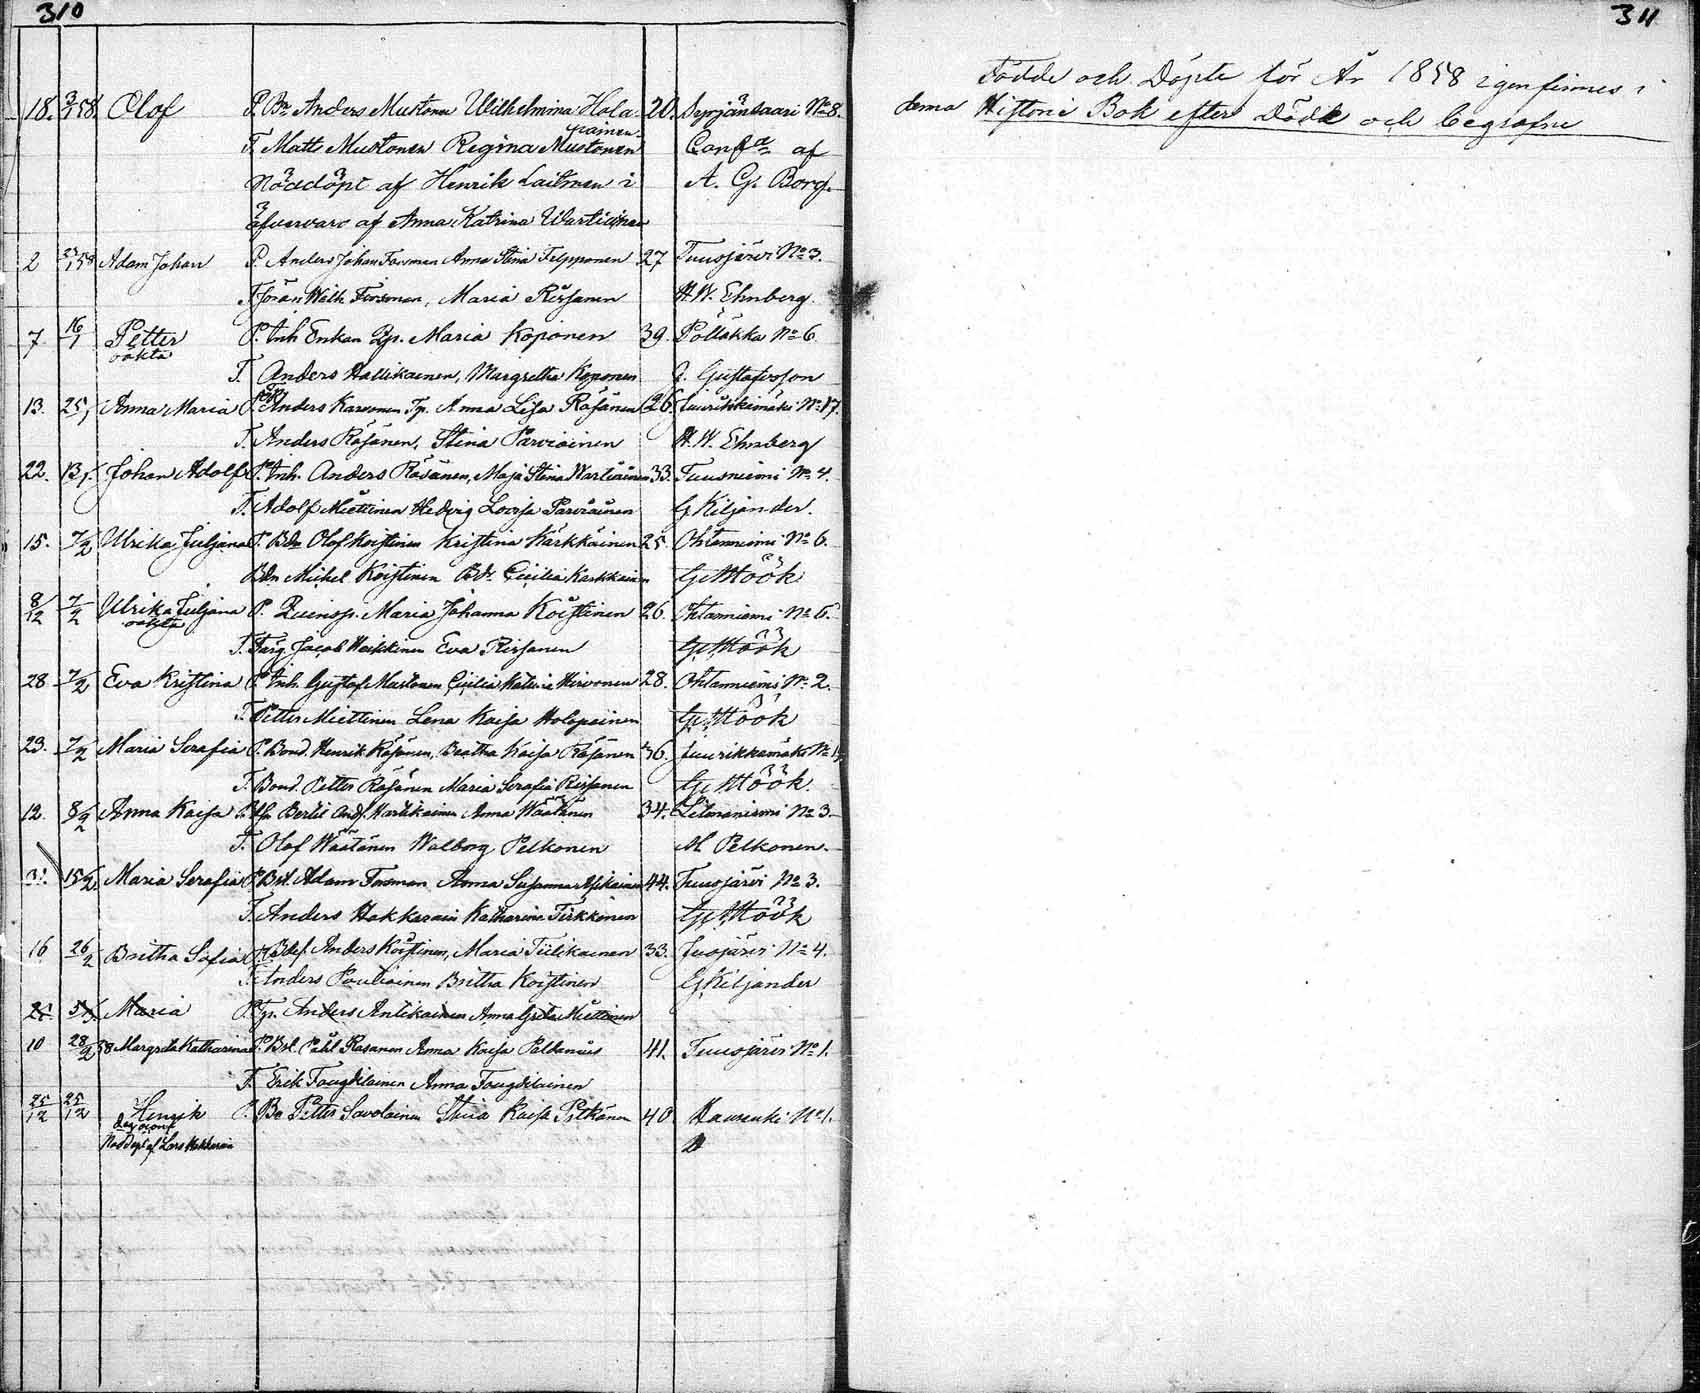 310
18. 3/1 58. Olof P. Bn Anders Mustonen Wilhelmina Hola- 20. Syrjänsaari No 8.
painen.
T. Matts Mustonen Regina Mustonen Conf af
Nöddöpt af Henrik Laitinen i A. G. Borg.
öfvervaro af Anna Katrina Wartiainen
2 Adam Johan P. Anders Johan Anna Stina 27 Tuusjärvi No 3.
T. Göran Wilh. Maria Rissanen H. W. Ehnberg.
7. 16/1 Petter P. Inh Enkan Maria Koponen 39. Pöllökkä No 6
oäkta
T. Anders Hallikainen, Margretha Koponen G. Gustafsson
13. 25/1 Anna Maria P. Anders Karvonen Anna Lisa Räsänen 26. Juurikkamäki No 17.
T. Anders Räsänen, Stina Parviainen H. W. Ehnberg
22. 13/1. Johan Adolf P. Inh. Anders Räsänen, Maja Stina Wartiainen 33. Tuusniemi No 4.
T. Adolf Miettinen Hedvig Lovisa Parviainen G. Kiljander.
15. 7/2 Ulrika Juljana P. Bdn Olof Koistinen Kristina Kärkkäinen 25. Ohtaniemi No 6.
Bdn Michel Koistinen Bd. Cicilia Karkkainen G. Höök
8/12 7/2 Ulrika Juljana P. Qvinsp. Maria Johanna Koistinen 26. Ohtaniemi No 6.
oäkta
T. Jacob Heikkinen Eva Rissanen G. Höök
28 7/2 Eva Kristina P. Inh. Gustaf Mustonen Cicilia Hirvonen 28. Ohtaniemi No 2.
T. Petter Miettinen Lena Kaisa Holopainen G. Höök
23. 7/2 Maria Serafia P. Bond. Henrik Räsänen, Beatha Kaisa Räsänen 36. Juurikkamäki No
T. Bond. Petter Räsänen Maria Serafia Rissanen G. Höök.
12. 8/2 Anna Kaisa P. Bertil And. Hartikainen Anna Wäätänen 34. Litmaniemi No 3.
T. Olof Wäätänen Walborg Pelkonen M. Pelkonen.
31. 15/2 Maria Serafia P. Adam Anna Susanna Asikainen 44. Tuusjärvi No 3.
T. Anders Hakkarain Katharina Tirkkonen G. Höök
16 26/2 Britha Sofia P. Anders Koistinen, Maria Tiilikainen 33. Tuusjärvi No 4.
T. Anders Pauliainen Britha Koistinen G. Kiljander
5/3 Maria P. Anders Antikainen Anna Greta Miettinen
10 28/2 58 Margreta Katharina P. Påhl Rasanen Anna Kaisa Paldanius 41. Tuusjärvi No 1.
T. Erik Anna
25/12 25/12 Henrik P. Bo Petter Savolainen Stina Kaisa Pitkänen 40. No 1.
Nöddöpt af Lars Hakkarain
311
Födde och Döpte för År 1858 igenfinnes i
dema Historie Bok efter Döde och begrafne